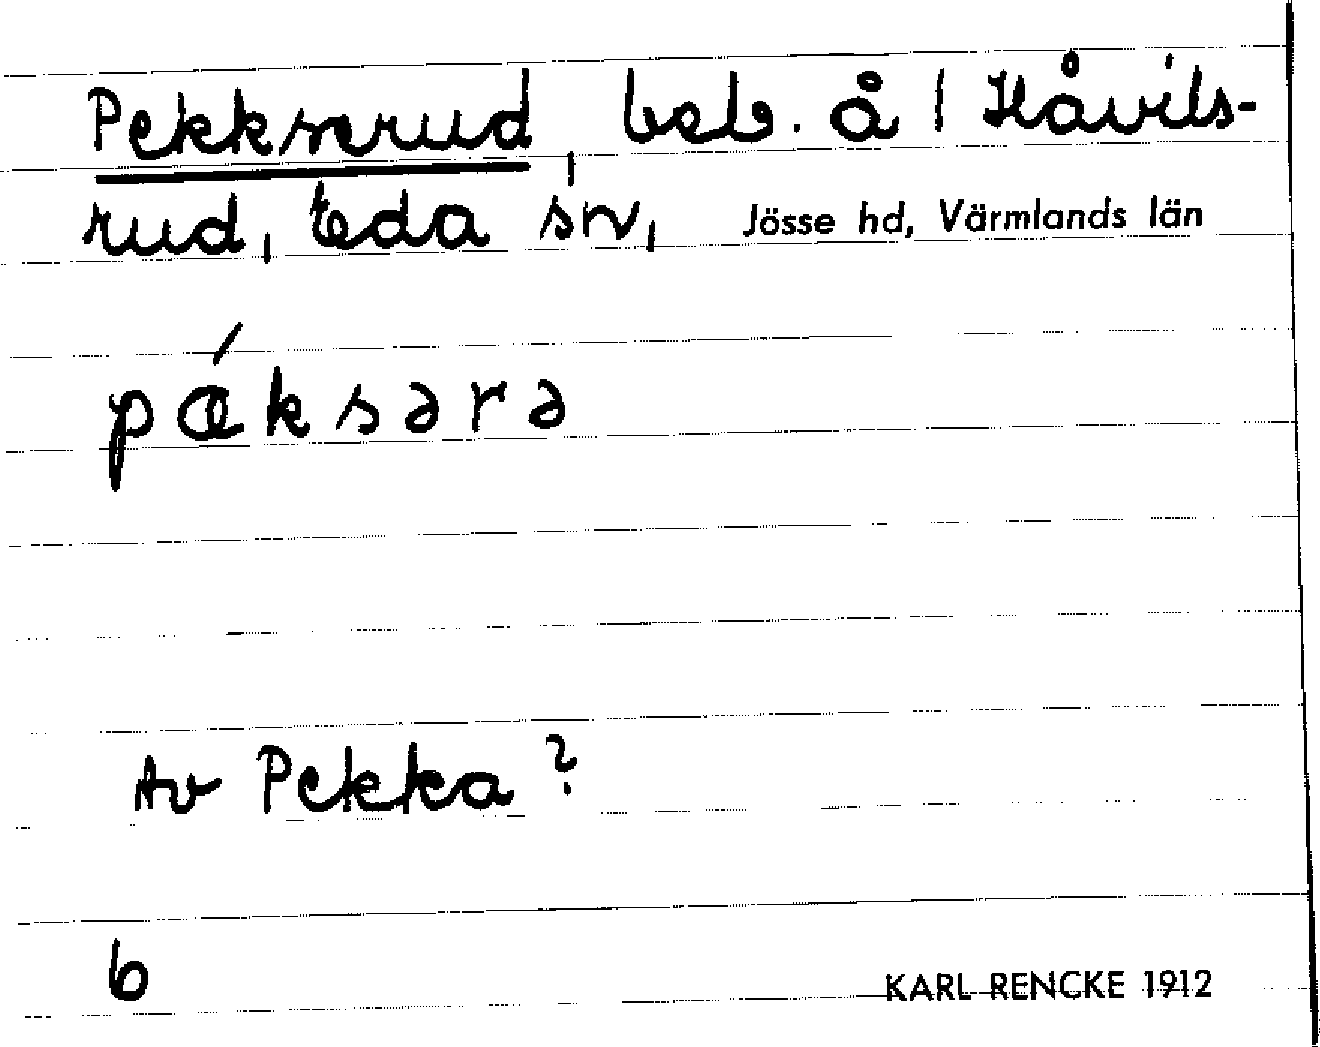 Pekkserud, beb. å 1 Håvils-
rud, Eda sn, Jösse hd, Värmlands län
pǽksərə
Av Pekka?
6
KARL RENCKE 1912